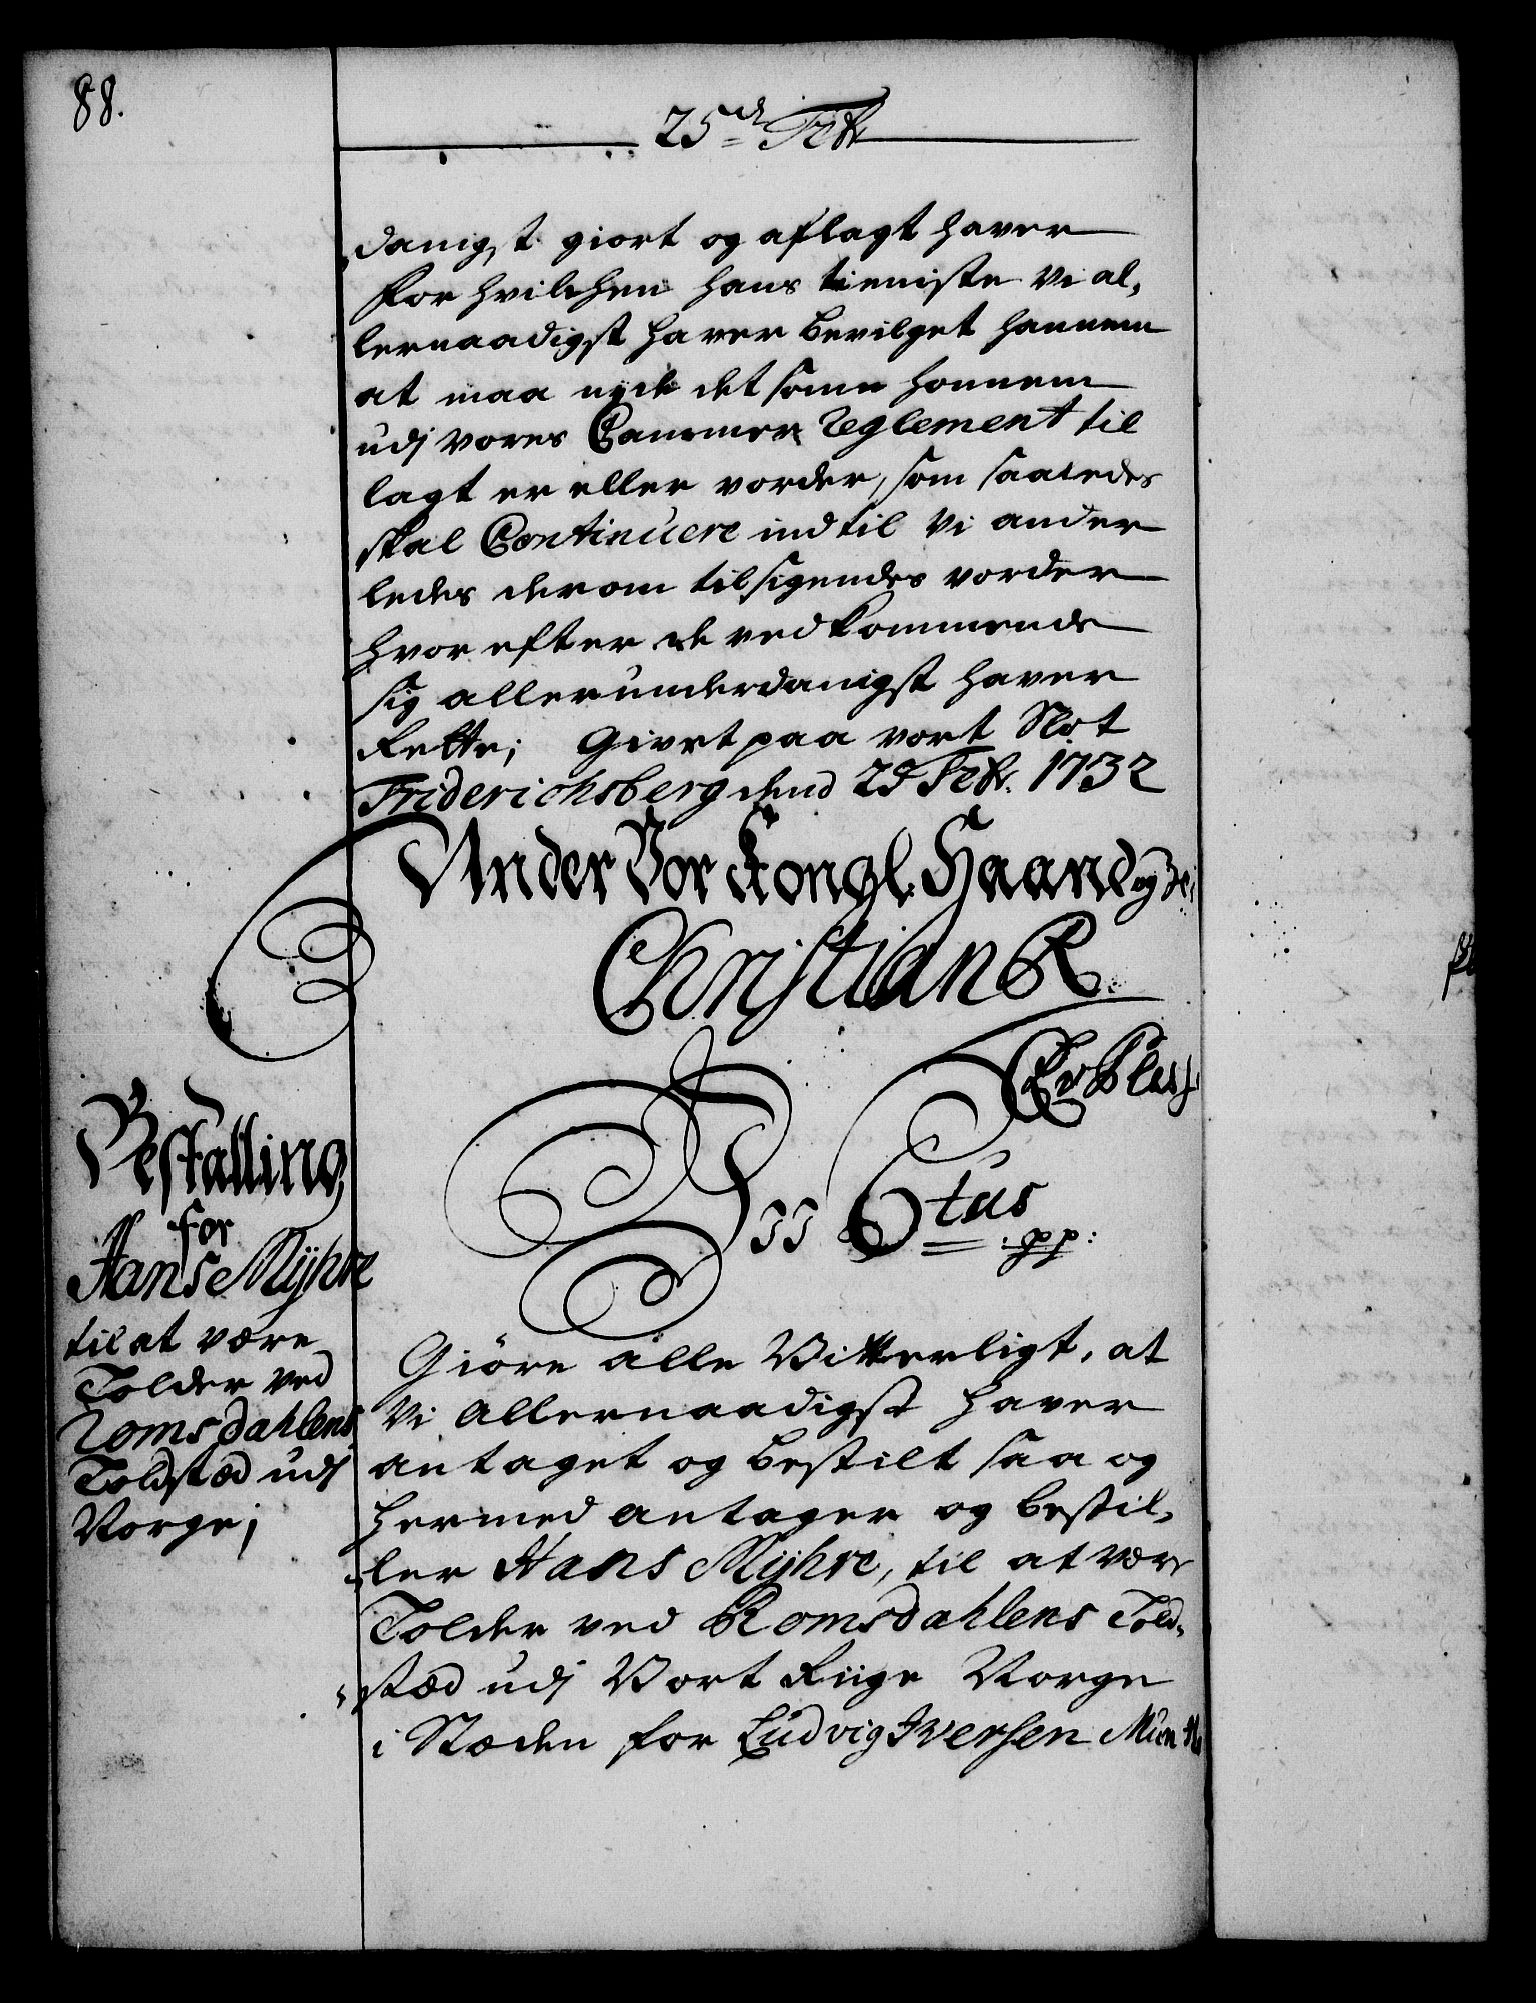 88.
25de Febr.
danigst giort og aflagt haver
for hvilchen hans tieniste Vi al,
lernaadigst haver bevilget hannem
at maa nyde det som hannem
udj vores Cammer Reglement til
lagt er eller vorder, som saaledes
skal Continuere indtil Vi ander
ledes derom tilsigendes vorder
hvor efter de vedkommende
sig allerunderdanigst haver
Rette; Givet paa vort Slot
Friderichsberg dend 25 Febr. 1732
Under Vor Kongl. Haand og
Christian R.
Vii C6tus
pp:
Bestalling
for
Hans Mijhre
til at være
Tolder ved
Romsdahlens
Toldstæd udj
Norge;
Giöre alle Vitterligt, at
Vi Allernaadigst haver
antaget og bestilt saa og
hermed antager og bestil,
ler Hans Mijhre, til at være
Tolder ved Romsdahlens Told,
stæd udj Vort Riige Norge
i Stæden for Ludvig Iversen Munthe